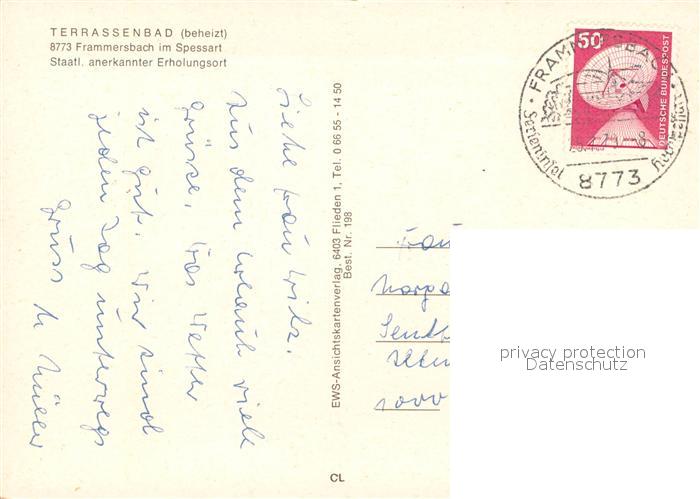 TERRASSENBAD (beheizt)
8773 Frammersbach im Spessart
Staatl. anerkannter Erholungsort
Liebe Frau Wilz.
Aus dem Urlaub viele
Grüsse. Das Wetter
ist gut. Wir sind
jeden Tag unterwegs
Gruss M Müller
EWS-Ansichtskartenverlag, 6403 Flieden 1, Tel. 0 66 55 - 14 50
Best. Nr. 198
CL
50
DEUTSCHE BUNDESPOST
FRAMMERSBACH
8773
Frau
1000
privacy protection
Datenschutz